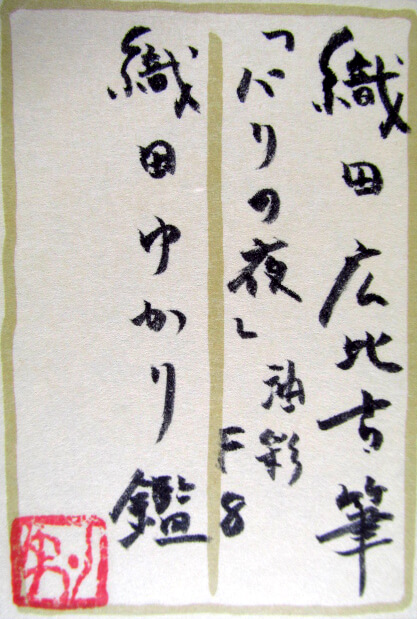 織田広比古筆
「パリの夜」油彩
F8
織田ゆかり鑑